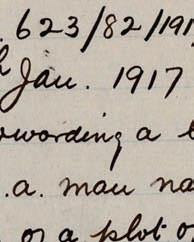 . 623/82/191
Jan. 1917
rwording a
.a. mau na
or a plot o